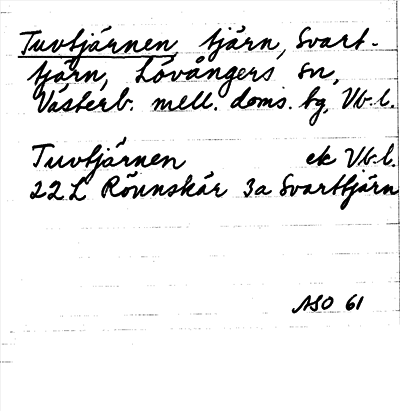 Tuvtjärnen, tjärn, Svart-
tjärn, Lövångers sn,
Västerb. mell. doms. tg, Vb-l.
Tuvtjärnen ek Vb-l.
22L Rönnskär 3a Svarttjärn
ASO 61